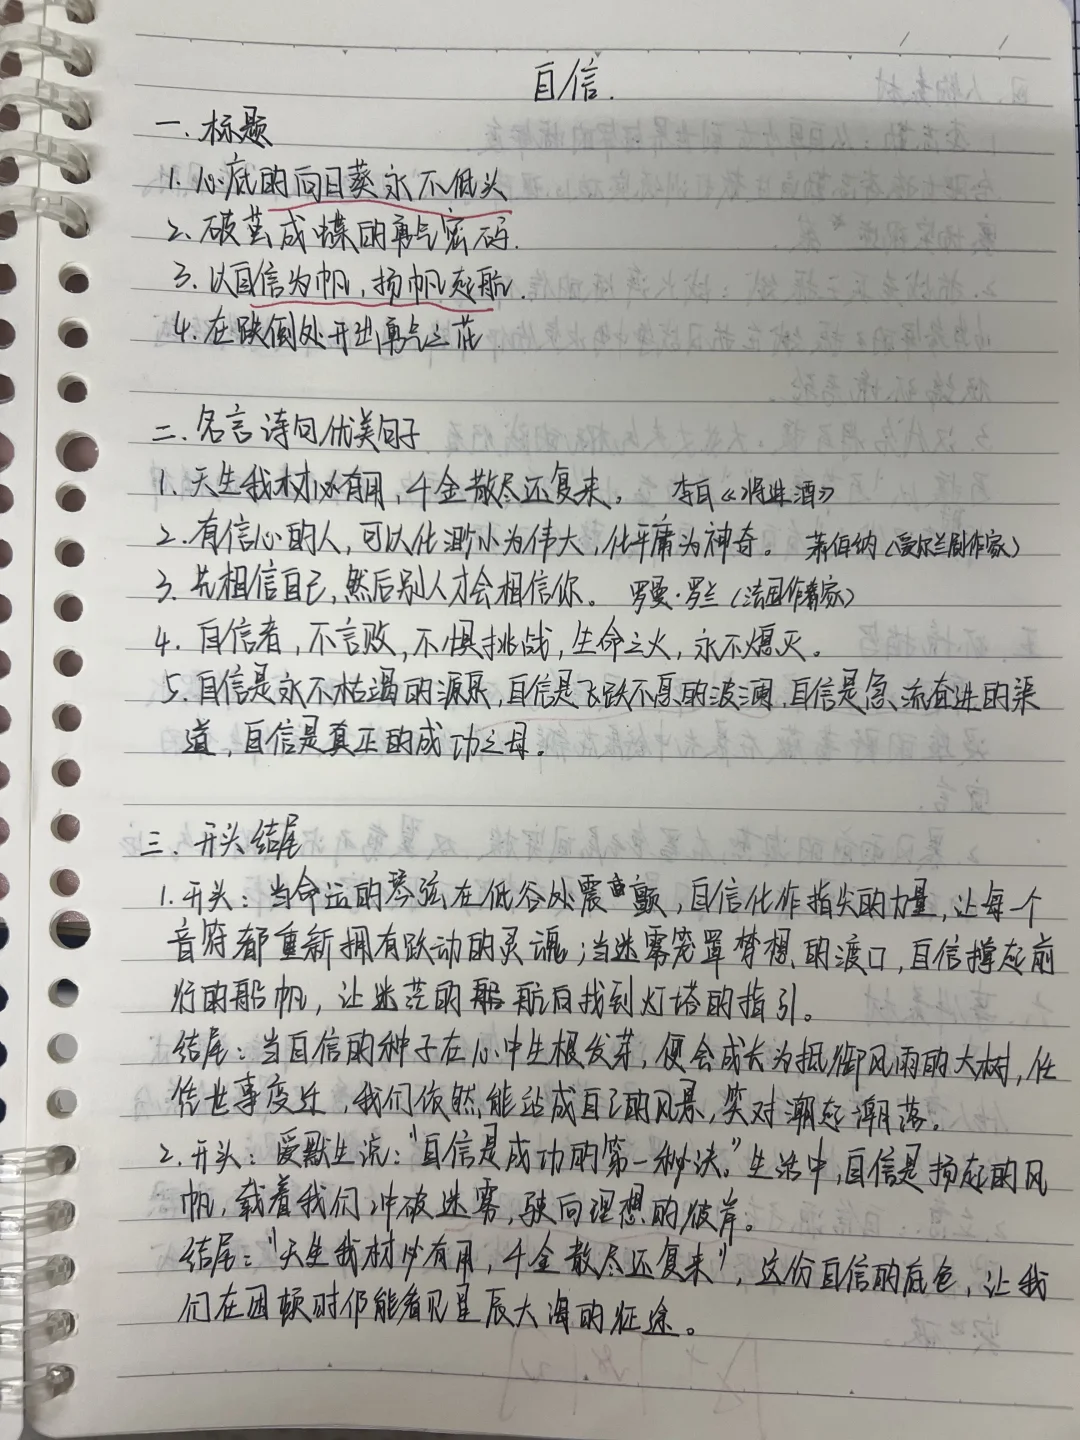 自信.
一. 标题
1. 心底的向日葵永不低头
2. 破茧成蝶的勇气密码.
3. 以自信为帆,扬帆起航.
4. 在跌倒处开出勇气之花
二. 名言诗句优美句子
1. 天生我材必有用,千金散尽还复来。 李白《将进酒》
2. 有信心的人,可以化渺小为伟大,化平庸为神奇。 萧伯纳(爱尔兰剧作家)
3. 先相信自己,然后别人才会相信你。 罗曼·罗兰(法国作家)
4. 自信者,不言败,不惧挑战,生命之火,永不熄灭。
5. 自信是永不枯竭的源泉,自信是飞跃不息的波澜,自信是急流奋进的渠
道,自信是真正的成功之母。
三. 开头结尾
1. 开头:当命运的琴弦在低谷处震颤,自信化作指尖的力量,让每一个
音符都重新拥有跃动的灵魂;当迷雾笼罩梦想的渡口,自信撑起前
行的船帆,让迷茫的船航向找到灯塔的指引。
结尾:当自信的种子在心中生根发芽,便会成长为抵御风雨的大树,任
凭世事变迁,我们依然能站成自己的风景,笑对潮起潮落。
2. 开头:爱默生说:"自信是成功的第一秘诀。"生活中,自信是扬起的风
帆,载着我们冲破迷雾,驶向理想的彼岸。
结尾:"天生我材必有用,千金散尽还复来",这份自信的底色,让我
们在困顿时仍能看见星辰大海的征途。